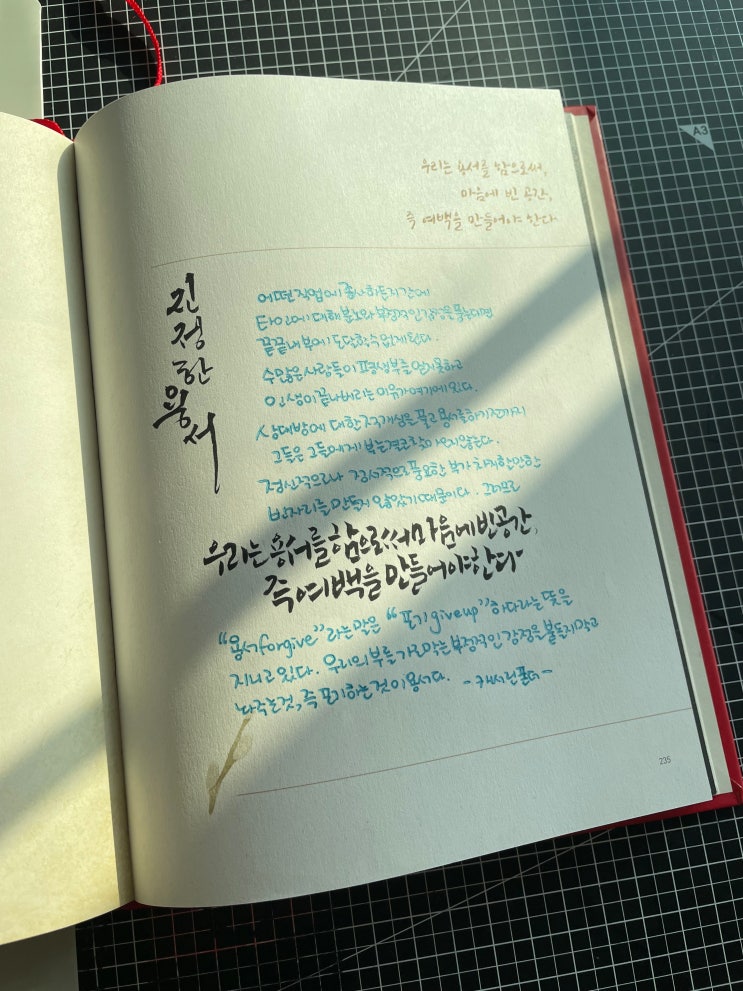 우리는 용서를 함으로써,
마음에 빈 공간,
즉 여백을 만들어야 한다
진정한 용서
어떤 직업에 종사하든지간에
타인에 대해 분노와 부정적인 감정을 품는다면
끝끝내 부에 도달할수 없게 된다.
수많은 사람들이 평생 부를 얻지못하고
인생이 끝나버리는 이유가 여기에 있다.
상대방에 대한 적개심을 풀고 용서를 하기 전까지
그들은 그들에게 부는 결코 찾아오지 않는다.
정신적으로나 정서적으로 풍요한 부가 차지할만한
빈자리를 만들지 않았기 때문이다. 그러므로
우리는 용서를 함으로써 마음에 빈 공간,
즉 여백을 만들어야 한다
“용서forgive”라는 말은 “포기give up”하다라는 뜻을
지니고 있다. 우리의 부를 가로막는 부정적인 감정을 붙들지 말고
놔주는 것, 즉 포기하는 것이 용서다. -캐서린 폰더-
235
A3